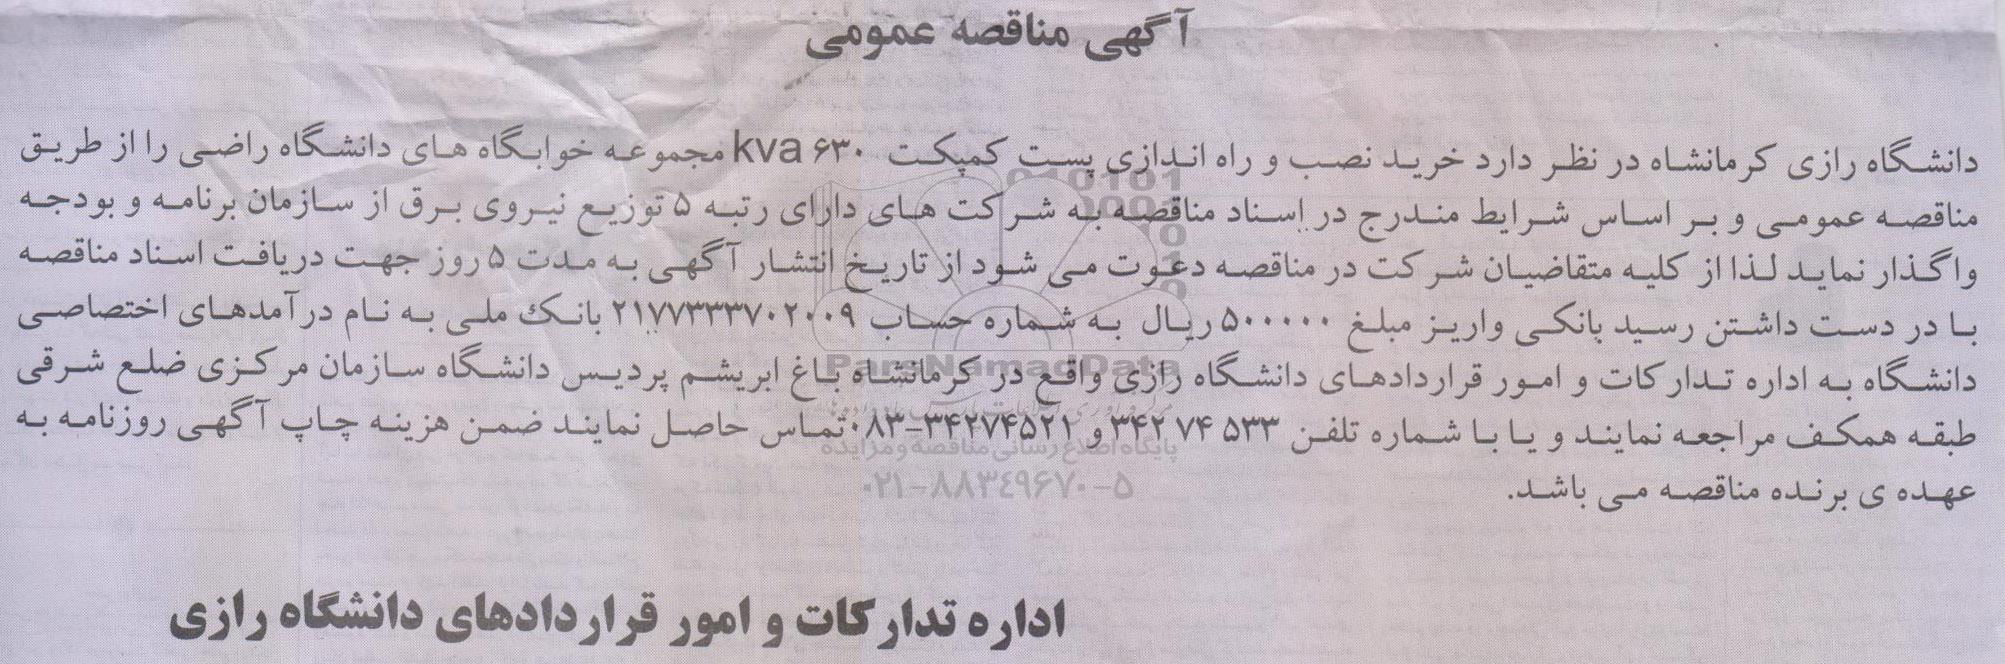 آگهی مناقصه عمومی
دانشگاه رازی کرمانشاه در نظر دارد خرید نصب و راه اندازی پست کمپکت kva ۶۳۰ مجموعه خوابگاه های دانشگاه راضی را از طریق
مناقصه عمومی و بر اساس شرایط مندرج در اسناد مناقصه به شرکت های دارای رتبه ۵ توزیع نیروی برق از سازمان برنامه و بودجه
واگذار نماید لذا از کلیه متقاضیان شرکت در مناقصه دعوت می شود از تاریخ انتشار آگهی به مدت ۵ روز جهت دریافت اسناد مناقصه
با در دست داشتن رسید بانکی واریز مبلغ ۵۰۰۰۰۰ ریال به شماره حساب ۲۱۷۷۳۳۳۷۰۲۰۰۹ بانک ملی به نام درآمدهای اختصاصی
دانشگاه به اداره تدارکات و امور قراردادهای دانشگاه رازی واقع در کرمانشاه باغ ابریشم پردیس دانشگاه سازمان مرکزی ضلع شرقی
طبقه همکف مراجعه نمایند و یا با شماره تلفن ۵۳۳ ۷۴ ۳۴۲ و ۳۴۲۷۴۵۲۱-۰۸۳ تماس حاصل نمایند ضمن هزینه چاپ آگهی روزنامه به
عهده ی برنده مناقصه می باشد.
اداره تدارکات و امور قراردادهای دانشگاه رازی
ParsNamadData
پایگاه اطلاع رسانی مناقصه و مزایده
۰۲۱-۸۸۳۴۹۶۷۰-۵